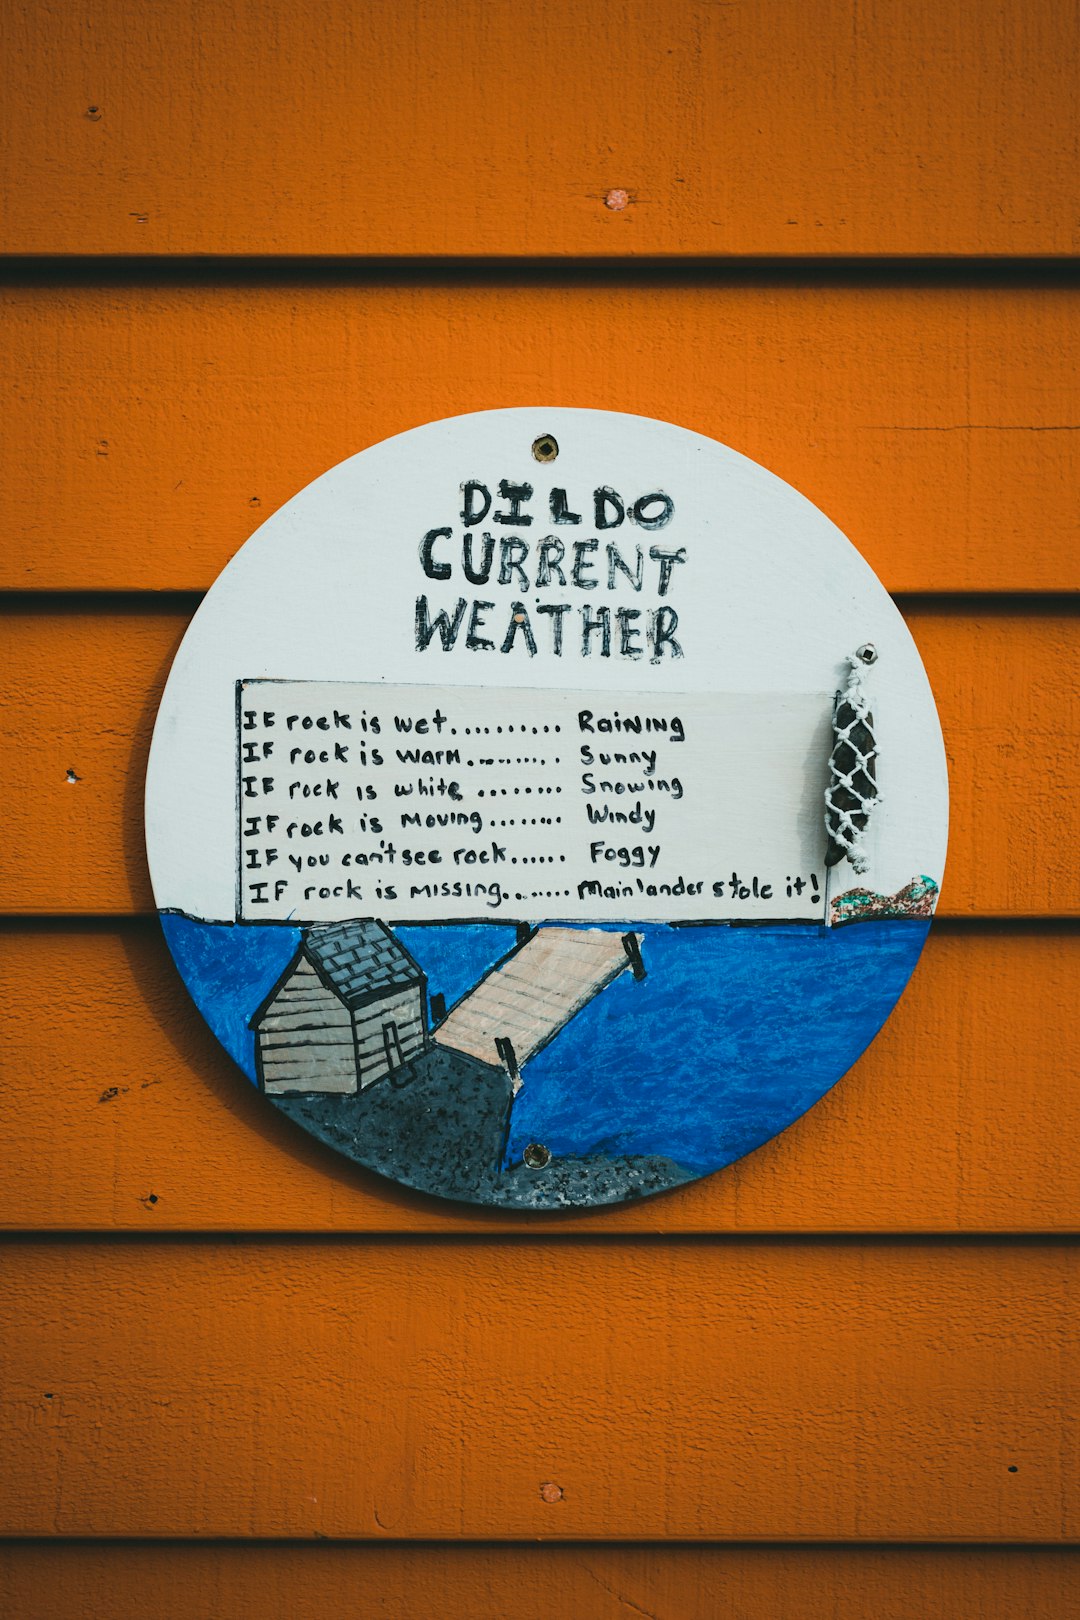 DILDO
CURRENT
WEATHER
IF rock is wet.......... Raining
IF rock is warm......... Sunny
IF rock is white ........ Snowing
IF rock is moving........ Windy
IF you can't see rock...... Foggy
IF rock is missing....... Mainlander stole it!